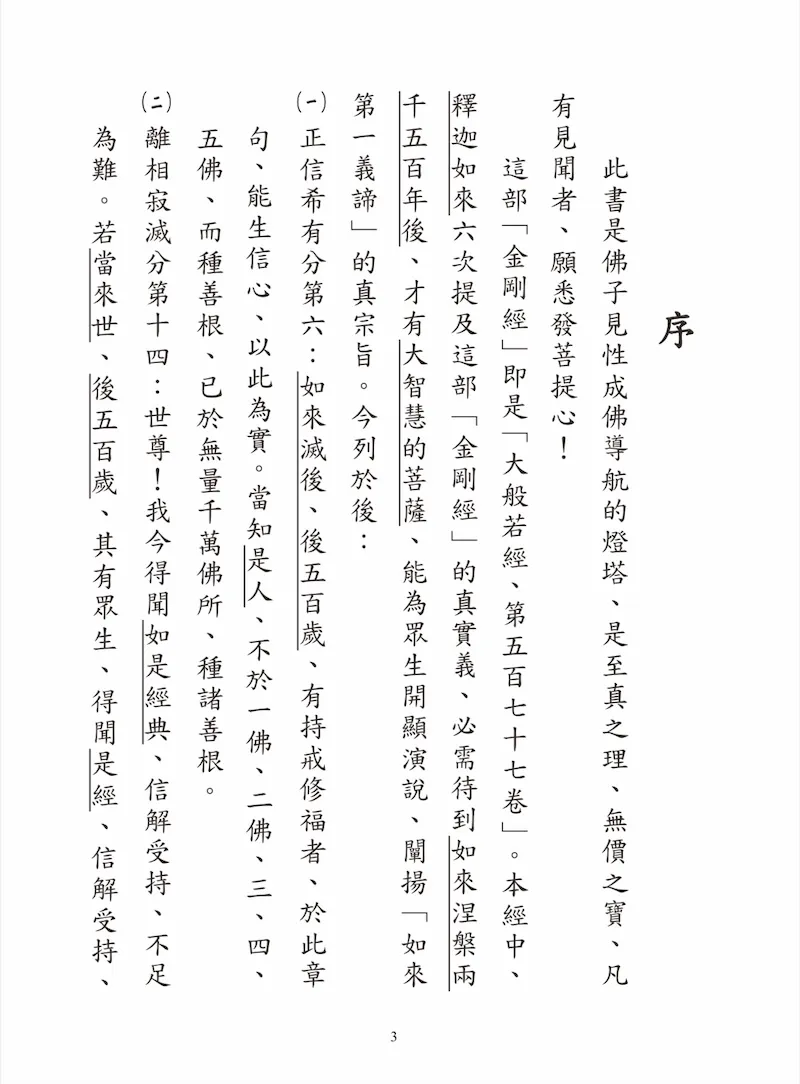 序
此書是佛子見性成佛導航的燈塔、是至真之理、無價之寶、凡
有見聞者、願悉發菩提心！
這部「金剛經」即是「大般若經、第五百七十七卷」。本經中、
釋迦如來六次提及這部「金剛經」的真實義、必需待到如來涅槃兩
千五百年後、才有大智慧的菩薩、能為眾生開顯演說、闡揚「如來
第一義諦」的真宗旨。今列於後：
(一) 正信希有分第六：如來滅後、後五百歲、有持戒修福者、於此章
句、能生信心、以此為實。當知是人、不於一佛、二佛、三、四、
五佛、而種善根、已於無量千萬佛所、種諸善根。
(二) 離相寂滅分第十四：世尊！我今得聞如是經典、信解受持、不足
為難。若當來世、後五百歲、其有眾生、得聞是經、信解受持、
3